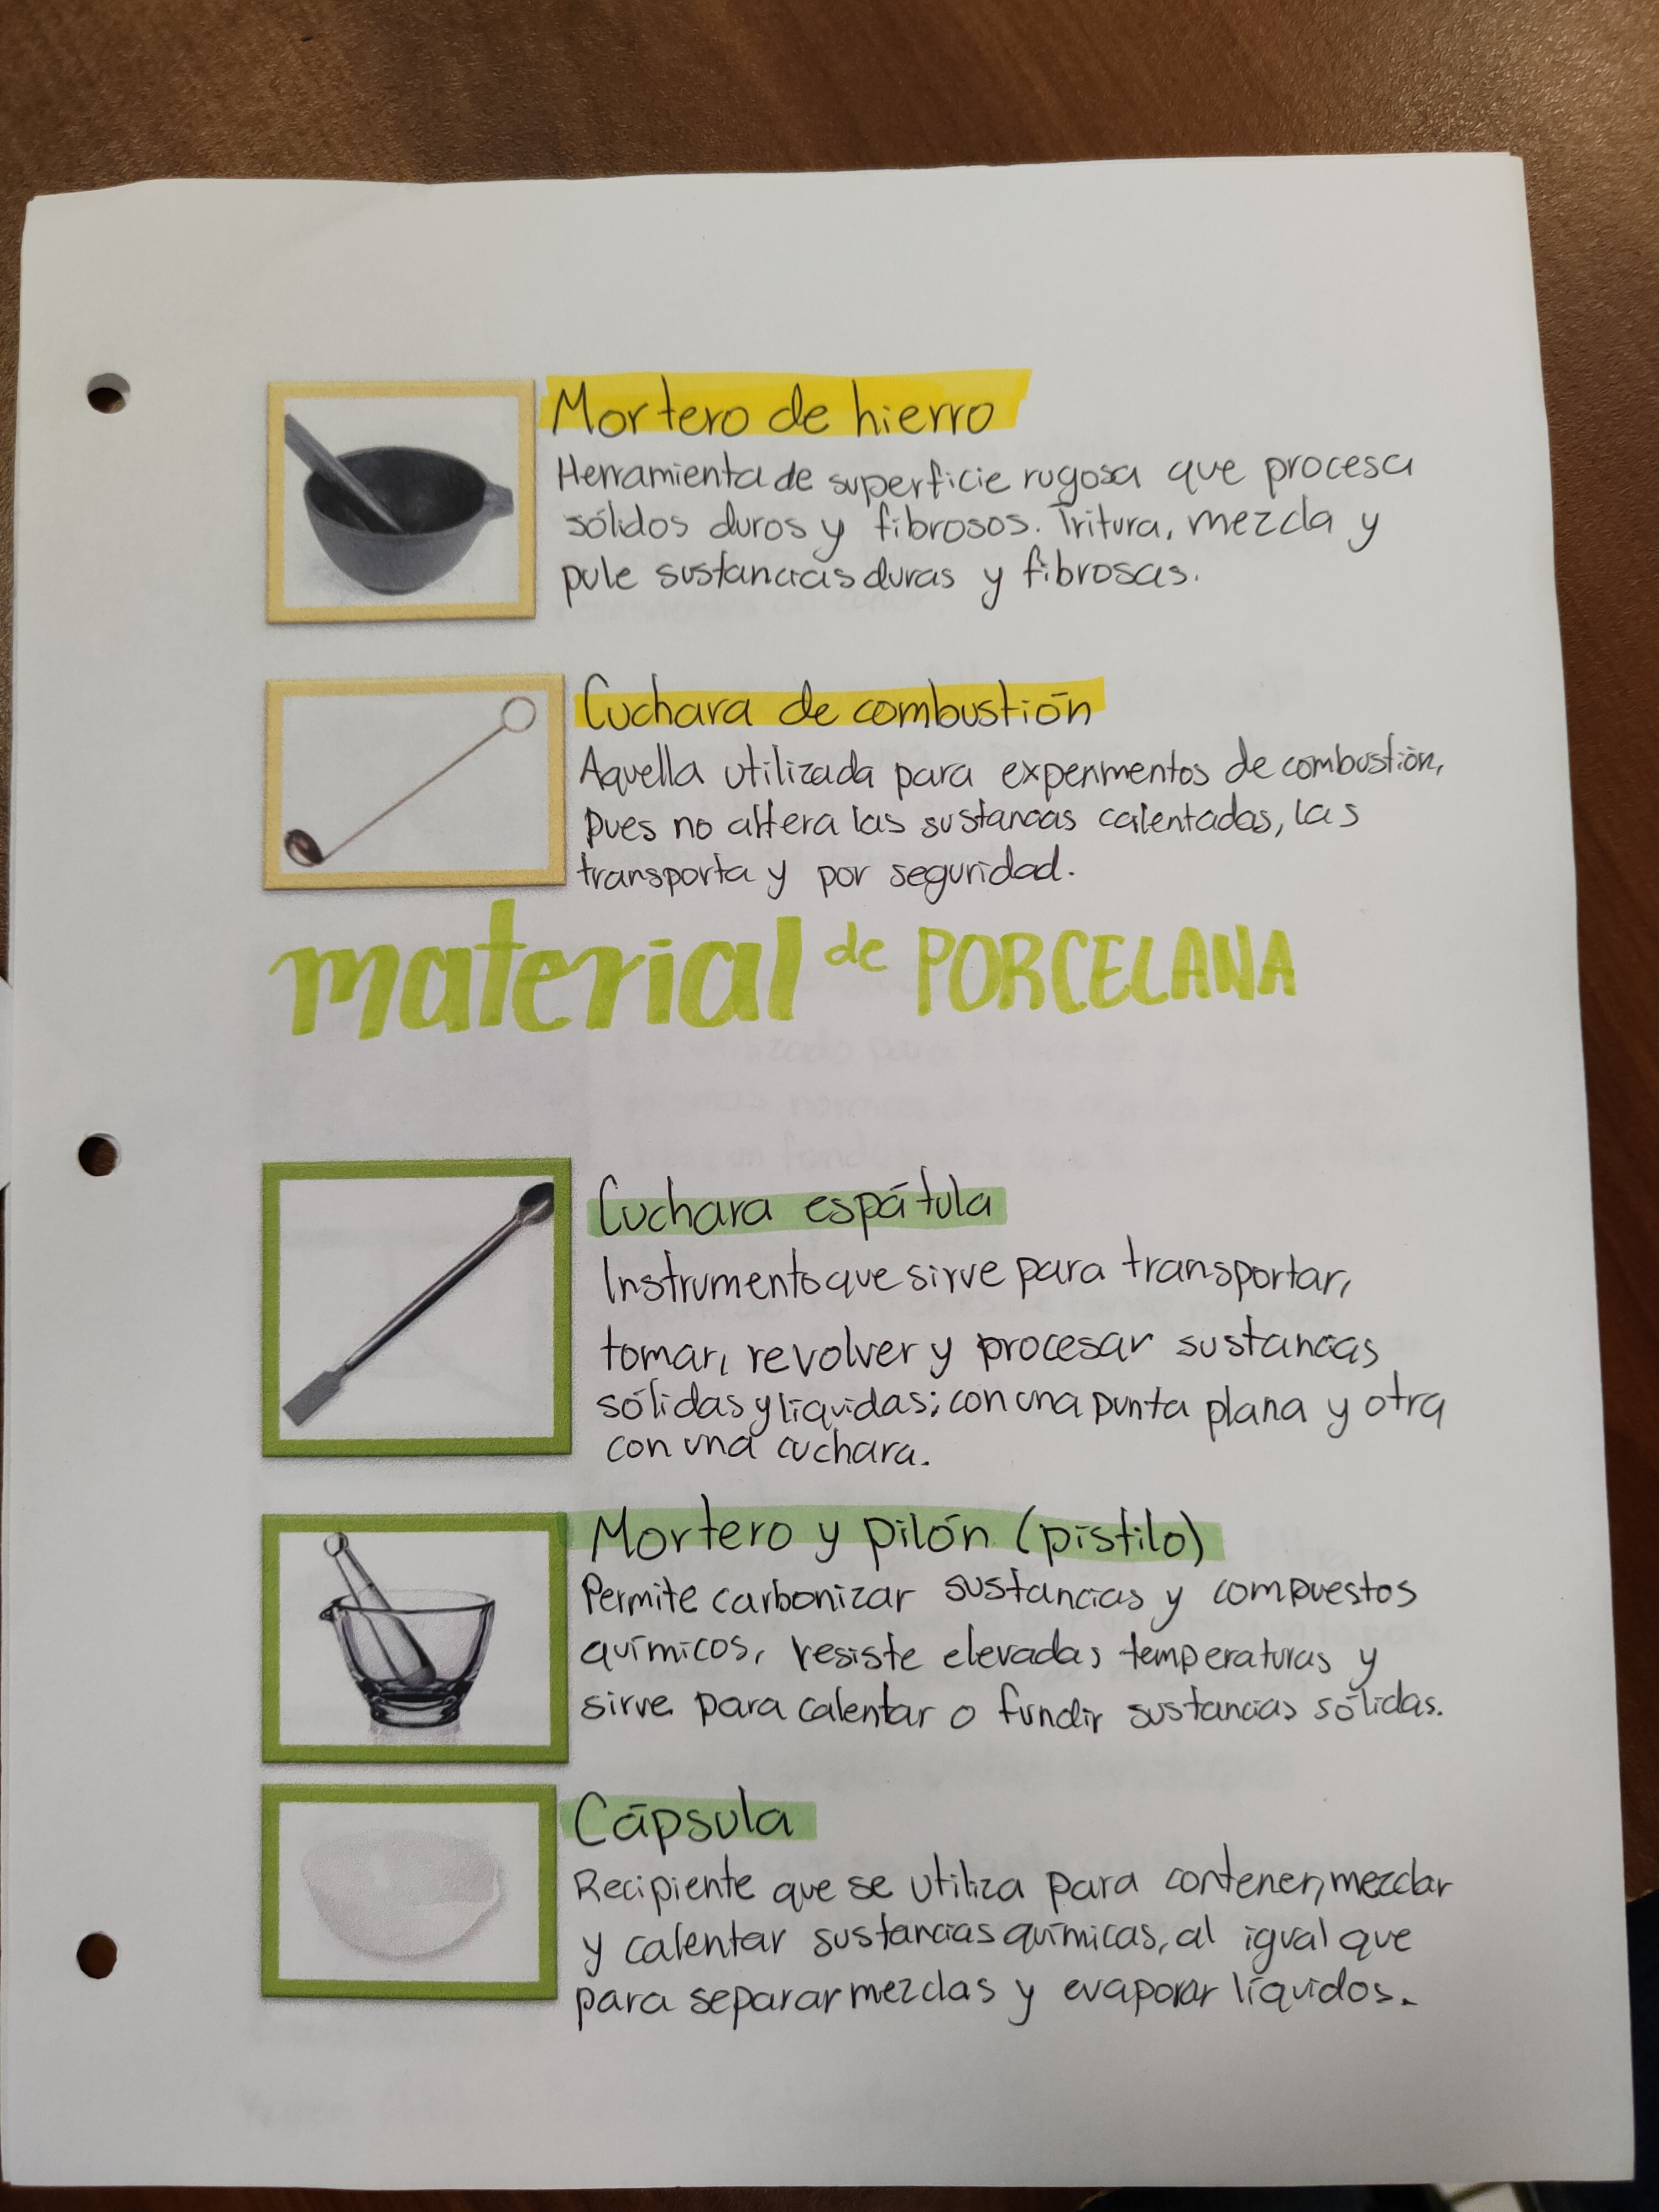 Mortero de hierro
Herramienta de superficie rugosa que procesa
sólidos duros y fibrosos. Tritura, mezcla y
pule sustancias duras y fibrosas.
Cuchara de combustión
Aquella utilizada para experimentos de combustión,
pues no altera las sustancias calentadas, las
transporta y por seguridad.
material de PORCELANA
Cuchara espátula
Instrumento que sirve para transportar,
tomar, revolver y procesar sustancias
sólidas y líquidas; con una punta plana y otra
con una cuchara.
Mortero y pilón (pistilo)
Permite carbonizar sustancias y compuestos
químicos, resiste elevadas temperaturas y
sirve para calentar o fundir sustancias sólidas.
Cápsula
Recipiente que se utiliza para contener, mezclar
y calentar sustancias químicas, al igual que
para separar mezclas y evaporar líquidos.